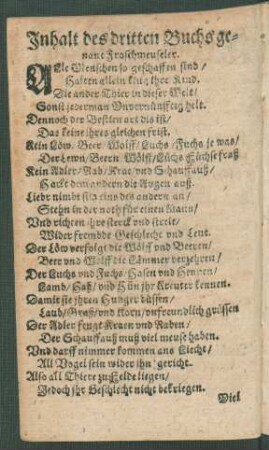 Inhalt des dritten Buchs ge-
nant Froschmeuseler.
Alle Menschen so geschaffen sind /
Halten allein klug ihre Kind.
Die ander Thier in dieser Welt /
Sonst jederman Unvernünfftig helt.
Dennoch der Bestien art dis ist /
Das keine ihres gleichen frist.
Kein Löw / Beer / Wolff / Luchs / Fuchs je was /
Der Lewn / Beern / Wölff / Lüchs / Füchse fraß
Kein Adler / Rab / Krae / und Schauffauß /
Hackt dem andern die Augen auß.
Liebr nimbt sich eins des andern an /
Stehn in der noth für einen Mann /
Und richten ihre sterck und streit /
Wider frembde Geschlecht und Leut.
Der Löw verfolgt die Wölff und Beeren /
Beer und Wölff die Lämmer verzehren /
Der Luchs und Fuchs / Hasen und Hennen /
Lamb / Haß / und Hün ihr Kreuter kennen.
Damit sie ihren Hunger büssen /
Laub / Graß / und Korn / unfreundlich grüssen
Der Adler fengt Kraen und Raben /
Der Schauffauß muß viel meuse haben.
Und darff nimmer kommen ans Liecht /
All Vogel sein wider ihn gericht.
Also all Thiere zu Felde liegen /
Jedoch ihr Geschlecht nicht bekriegen.
Viel